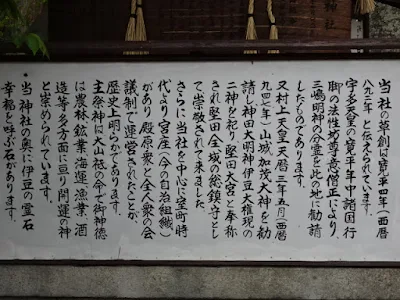 神社
当社の草創は寛平四年(西暦
八九二年)と伝えられています。
宇多天皇の寛平年中諸国行
脚の法性坊尊意僧正により、
三嶋明神の分霊を此の地に勧請
したものであります。
又村上天皇天暦二年五月(西暦
九四七年)山城加茂大神を勧
請し神田大明神伊豆大権現の
二神を祀り、堅田大宮と奉称
され堅田全域の総鎮守とし
て崇敬されて来ました。
さらに当社を中心に室町時
代より宮座(今の自治組織)
があり殿原衆と全人衆の会
議制で運営されたことが、
歴史上明らかであります。
主祭神は大山祗命で御神徳
は農林、鉱業、海運、漁業、酒
造等多方面に亘り開運の神
と崇められています。
当神社の奥に伊豆の霊石
幸福を呼ぶ石があります。